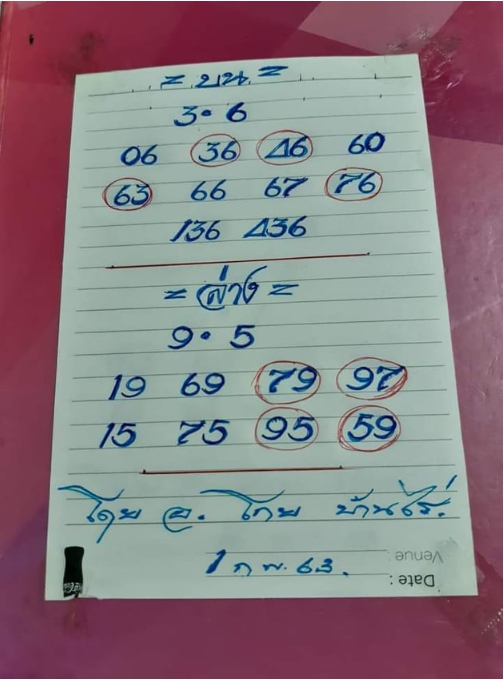 = บน =
3 • 6
06 36 46 60
63 66 67 76
136 436
= ล่าง =
9 • 5
19 69 79 97
15 75 95 59
โดย อ. โกย บ้านไร่.
1 ก.พ. 63.
Venue :
Date :